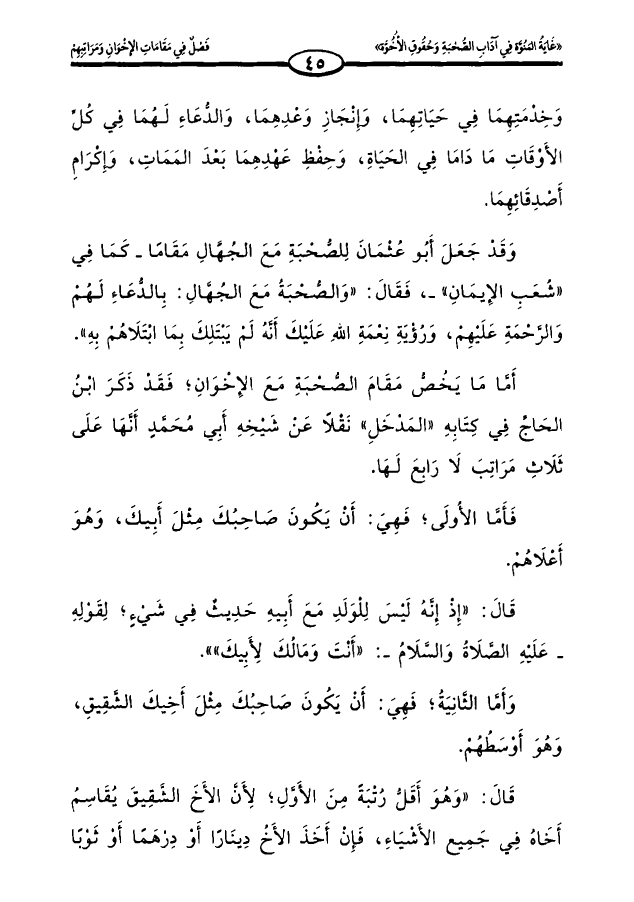 «غَايَةُ المُنُوَّة فِي آدَابِ الصُّحْبَةِ وَحُقُوقِ الأُخُوَّة» ٤٥ فَصْلٌ فِي مَقَامَاتِ الإِخْوَانِ وَمَرَاتِبِهِمْ
وَخِدْمَتِهِمَا فِي حَيَاتِهِمَا، وَإِنْجَازِ وَعْدِهِمَا، وَالدُّعَاءِ لَهُمَا فِي كُلِّ
الأَوْقَاتِ مَا دَامَا فِي الحَيَاةِ، وَحِفْظِ عَهْدِهِمَا بَعْدَ المَمَاتِ، وَإِكْرَامِ
أَصْدِقَائِهِمَا.
وَقَدْ جَعَلَ أَبُو عُثْمَانَ لِلصُّحْبَةِ مَعَ الجُهَّالِ مَقَامًا ـ كَمَا فِي
«شُعَبِ الإِيمَانِ» ـ، فَقَالَ: «وَالصُّحْبَةُ مَعَ الجُهَّالِ: بِالدُّعَاءِ لَهُمْ
وَالرَّحْمَةِ عَلَيْهِمْ، وَرُؤْيَةِ نِعْمَةِ اللهِ عَلَيْكَ أَنَّهُ لَمْ يَبْتَلِكَ بِمَا ابْتَلَاهُمْ بِهِ».
أَمَّا مَا يَخُصُّ مَقَامَ الصُّحْبَةِ مَعَ الإِخْوَانِ؛ فَقَدْ ذَكَرَ ابْنُ
الحَاجِّ فِي كِتَابِهِ «المَدْخَلِ» نَقْلًا عَنْ شَيْخِهِ أَبِي مُحَمَّدٍ أَنَّهَا عَلَى
ثَلَاثِ مَرَاتِبَ لَا رَابِعَ لَهَا.
فَأَمَّا الأُولَى؛ فَهِيَ: أَنْ يَكُونَ صَاحِبُكَ مِثْلَ أَبِيكَ، وَهُوَ
أَعْلَاهُمْ.
قَالَ: «إِذْ إِنَّهُ لَيْسَ لِلْوَلَدِ مَعَ أَبِيهِ حَدِيثٌ فِي شَيْءٍ؛ لِقَوْلِهِ
ـ عَلَيْهِ الصَّلَاةُ وَالسَّلَامُ ـ: «أَنْتَ وَمَالُكَ لِأَبِيكَ»».
وَأَمَّا الثَّانِيَةُ؛ فَهِيَ: أَنْ يَكُونَ صَاحِبُكَ مِثْلَ أَخِيكَ الشَّقِيقِ،
وَهُوَ أَوْسَطُهُمْ.
قَالَ: «وَهُوَ أَقَلُّ رُتْبَةً مِنَ الأَوَّلِ؛ لِأَنَّ الأَخَ الشَّقِيقَ يُقَاسِمُ
أَخَاهُ فِي جَمِيعِ الأَشْيَاءِ، فَإِنْ أَخَذَ الأَخُ دِينَارًا أَوْ دِرْهَمًا أَوْ ثَوْبًا